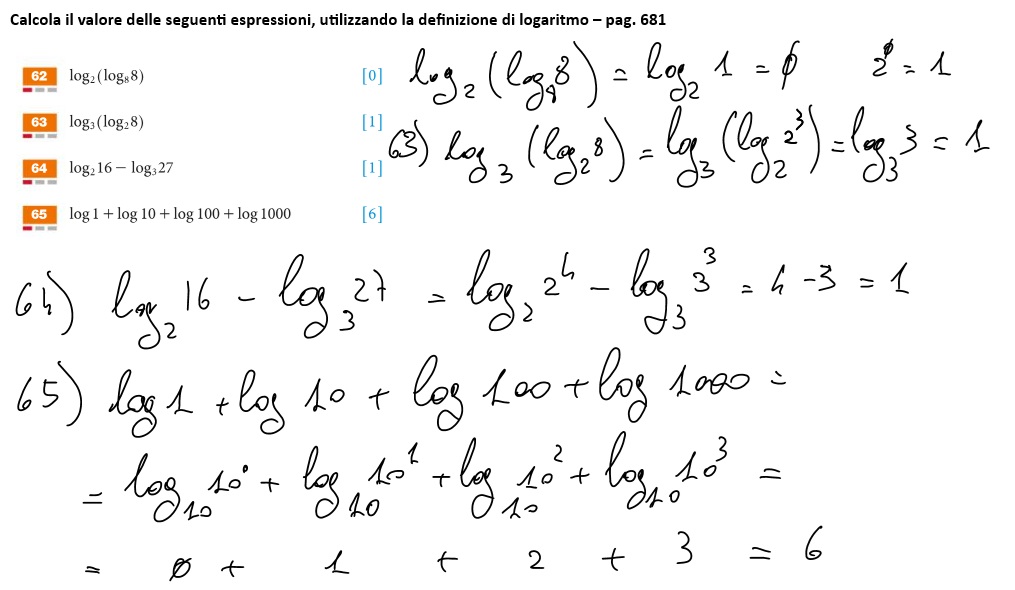 Calcola il valore delle seguenti espressioni, utilizzando la definizione di logaritmo – pag. 681
62 log₂(log₈8) [0] log₂(log₈8) = log₂ 1 = 0 2⁰ = 1
63 log₃(log₂8) [1] 63) log₃(log₂8) = log₃(log₂2³) = log₃3 = 1
64 log₂16 – log₃27 [1]
65 log 1 + log 10 + log 100 + log 1000 [6]
64) log₂16 - log₃27 = log₂2⁴ - log₃3³ = 4 - 3 = 1
65) log 1 + log 10 + log 100 + log 1000 =
= log₁₀10⁰ + log₁₀10¹ + log₁₀10² + log₁₀10³ =
= 0 + 1 + 2 + 3 = 6